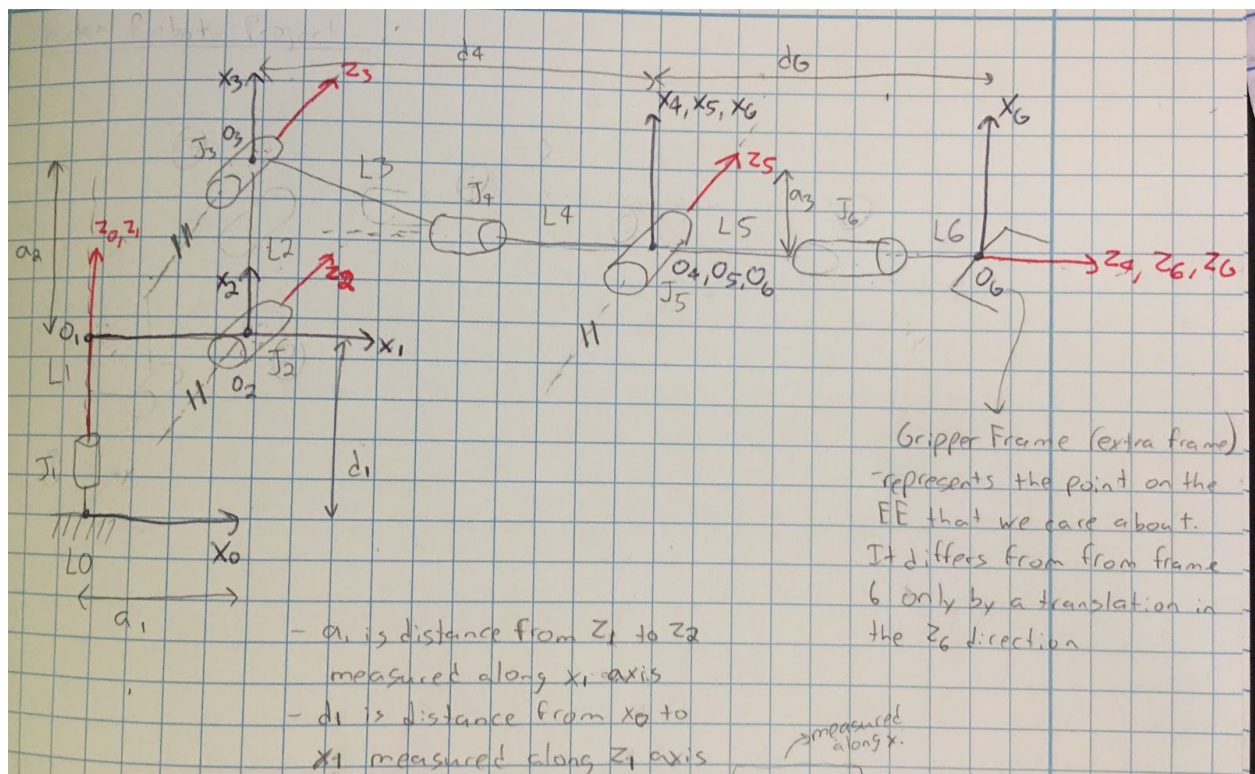 d4
dG
X3
Z3
X4, X5, X6
XG
O3
J3
Z5
L3
J4
a3
J6
Z0, Z1
L4
L5
L6
a2
L2
Z2
X2
O4, O5, O6
OG
Z4, Z6, ZG
J5
O1
X1
L1
J2
O2
J1
d1
Gripper Frame (extra frame)
-represents the point on the
EE that we care about.
It differs from from frame
6 only by a translation in
the Z6 direction
X0
L0
a1
- a1 is distance from Z1 to Z2
measured along X1 axis
- d1 is distance from X0 to
X1 measured along Z1 axis
measured
along x.